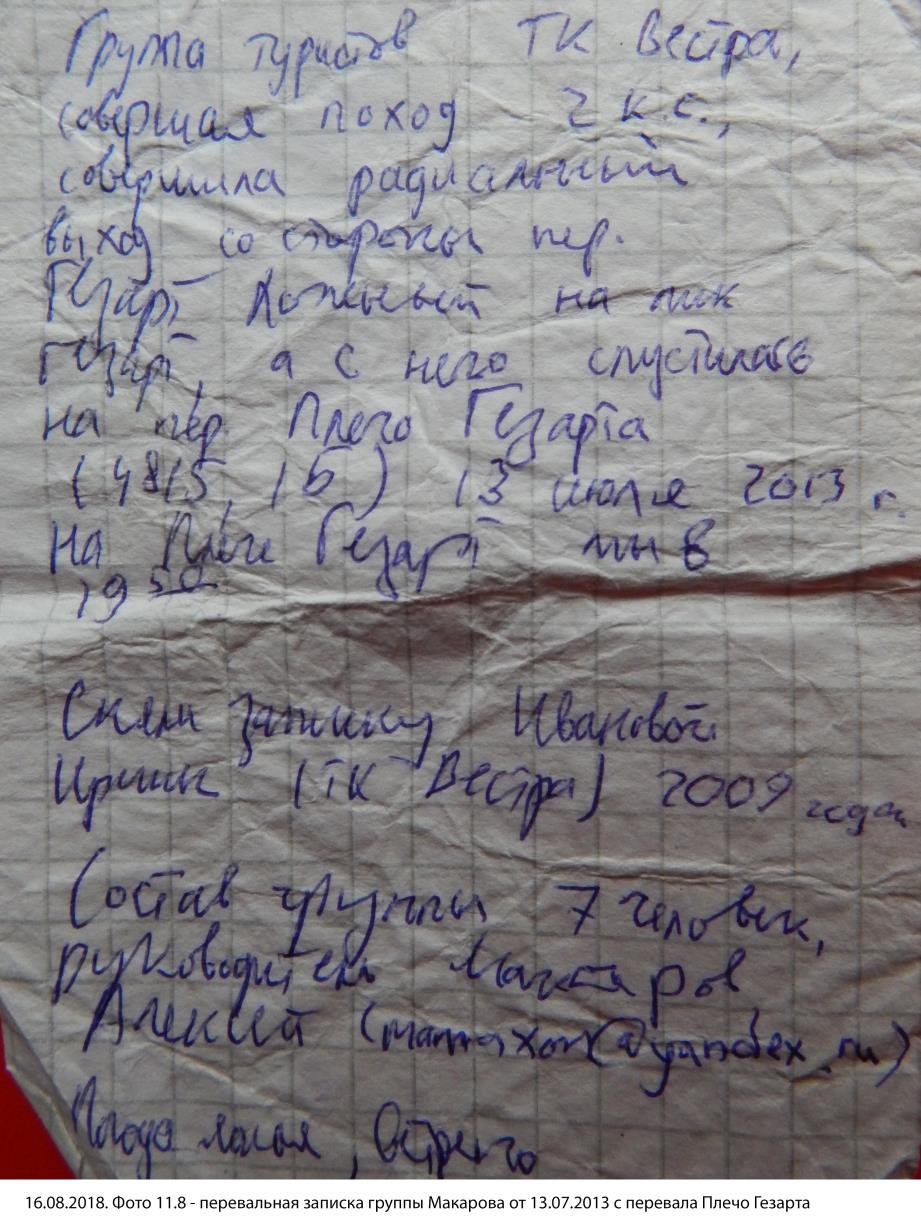 Группа туристов ТК Вестра,
совершая поход 2 к.с.,
совершила радиальный
выход со стороны пер.
Гезарт Южный на пик
Гезарт, а с него спустилась
на пер. Плечо Гезарта
(4815, 1Б) 13 июля 2013 г.
На Плече Гезарт мы в
19 50
Сняли записку Ивановой
Ирины (ТК Вестра) 2009 года
Состав группы 7 человек,
руководитель Макаров
Алексей (@yandex.ru)
Погода
16.08.2018. Фото 11.8 - перевальная записка группы Макарова от 13.07.2013 с перевала Плечо Гезарта